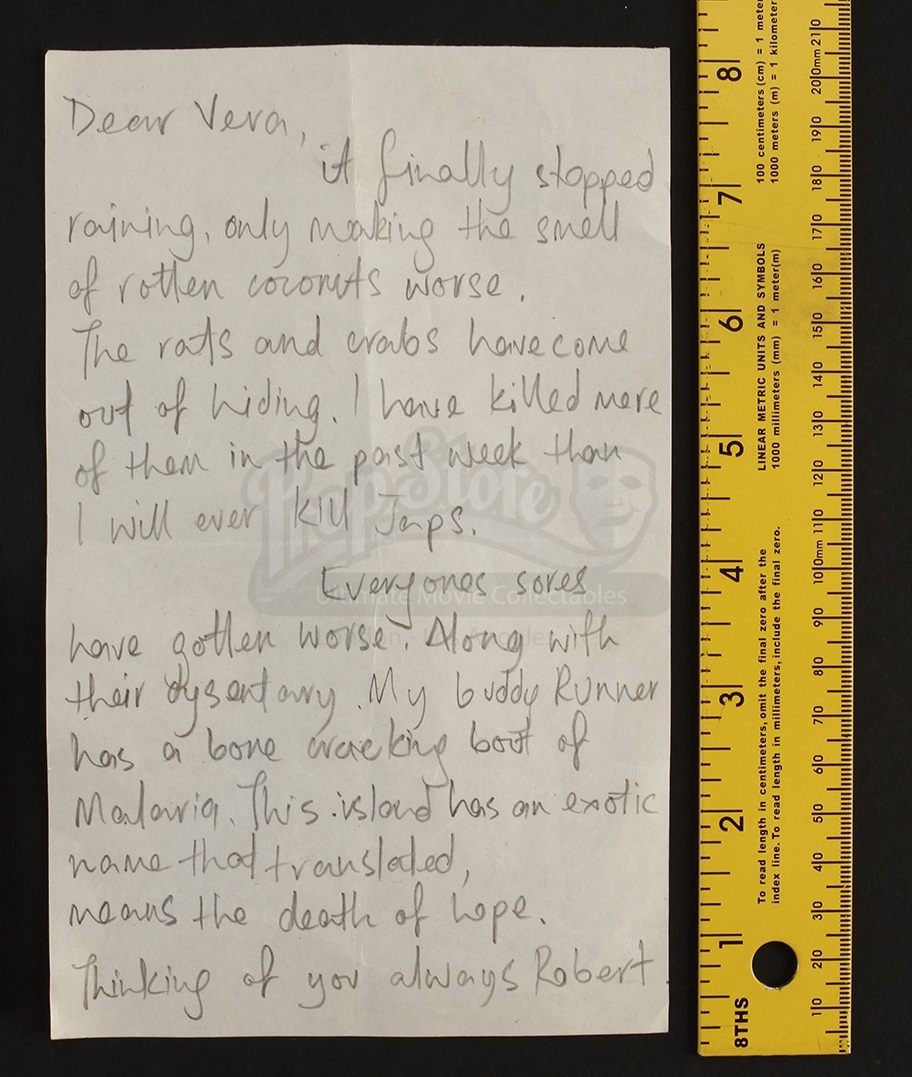 Dear Vera,
it finally stopped
raining, only making the smell
of rotten coconuts worse.
The rats and crabs have come
out of hiding. I have killed more
of them in the past week than
I will ever kill Japs.
Everyones sores
have gotten worse. Along with
their dysentary. My buddy Runner
has a bone cracking bout of
Malaria. This island has an exotic
name that translated,
means the death of hope.
Thinking of you always Robert
Prop Store
Ultimate Movie Collectables
8THS
1 2 3 4 5 6 7 8
10 20 30 40 50 60 70 80 90 100mm 110 120 130 140 150 160 170 180 190 200mm 210
To read length in centimeters, omit the final zero after the
index line. To read length in millimeters, include the final zero.
LINEAR METRIC UNITS AND SYMBOLS
1000 millimeters (mm) = 1 meter(m)
100 centimeters (cm) = 1 meter
1000 meters (m) = 1 kilometer